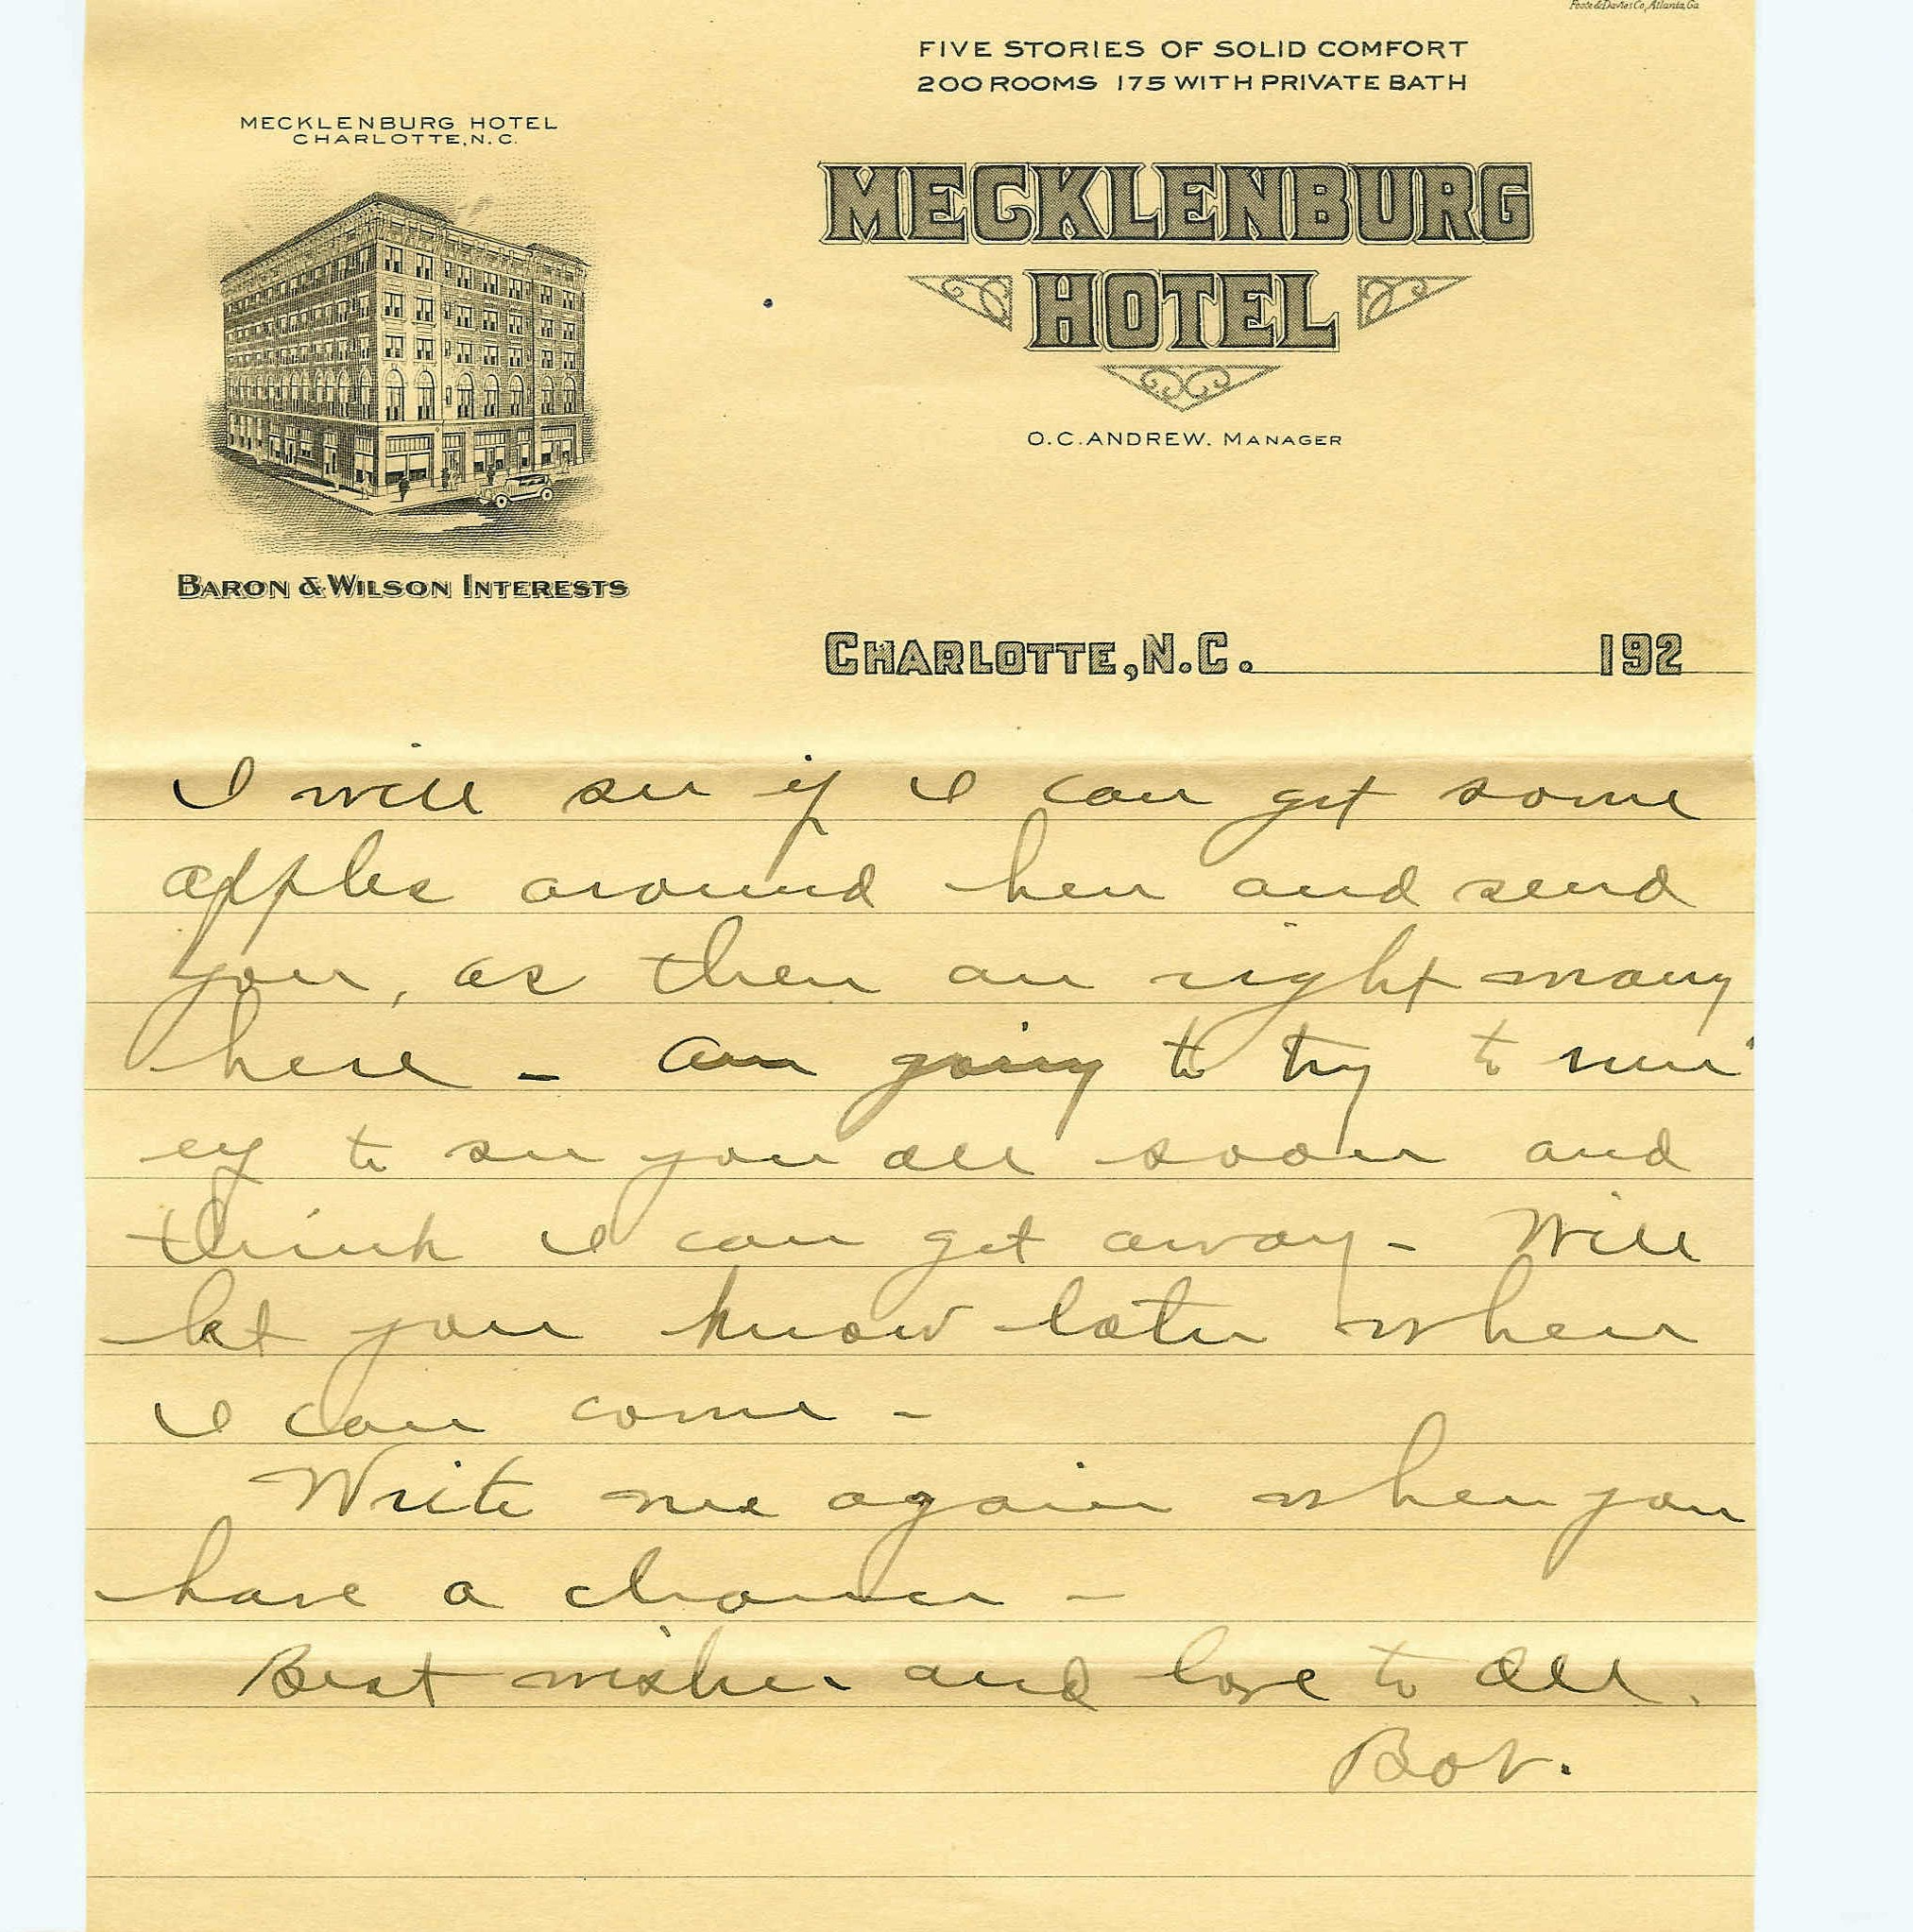 Foote & Davies Co, Atlanta, Ga
FIVE STORIES OF SOLID COMFORT
200 ROOMS 175 WITH PRIVATE BATH
MECKLENBURG HOTEL
CHARLOTTE, N.C.
MECKLENBURG
HOTEL
O.C. ANDREW. MANAGER
BARON & WILSON INTERESTS
CHARLOTTE, N.C. 192
I will see if I can get some
apples around here and send
you, as there are right many
here - Am going to try to run
up to see you all soon and
think I can get away - Will
let you know later when
I can come -
Write me again when you
have a chance -
Best wishes and love to all.
Bob.